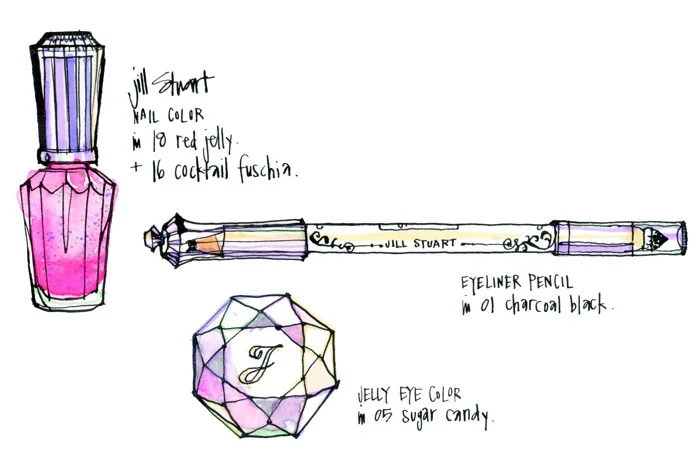 jill Stuart
NAIL COLOR
in 18 red jelly.
+ 16 cocktail fuschia.
JILL STUART
EYELINER PENCIL
in 01 charcoal black.
J
JELLY EYE COLOR
in 05 sugar candy.